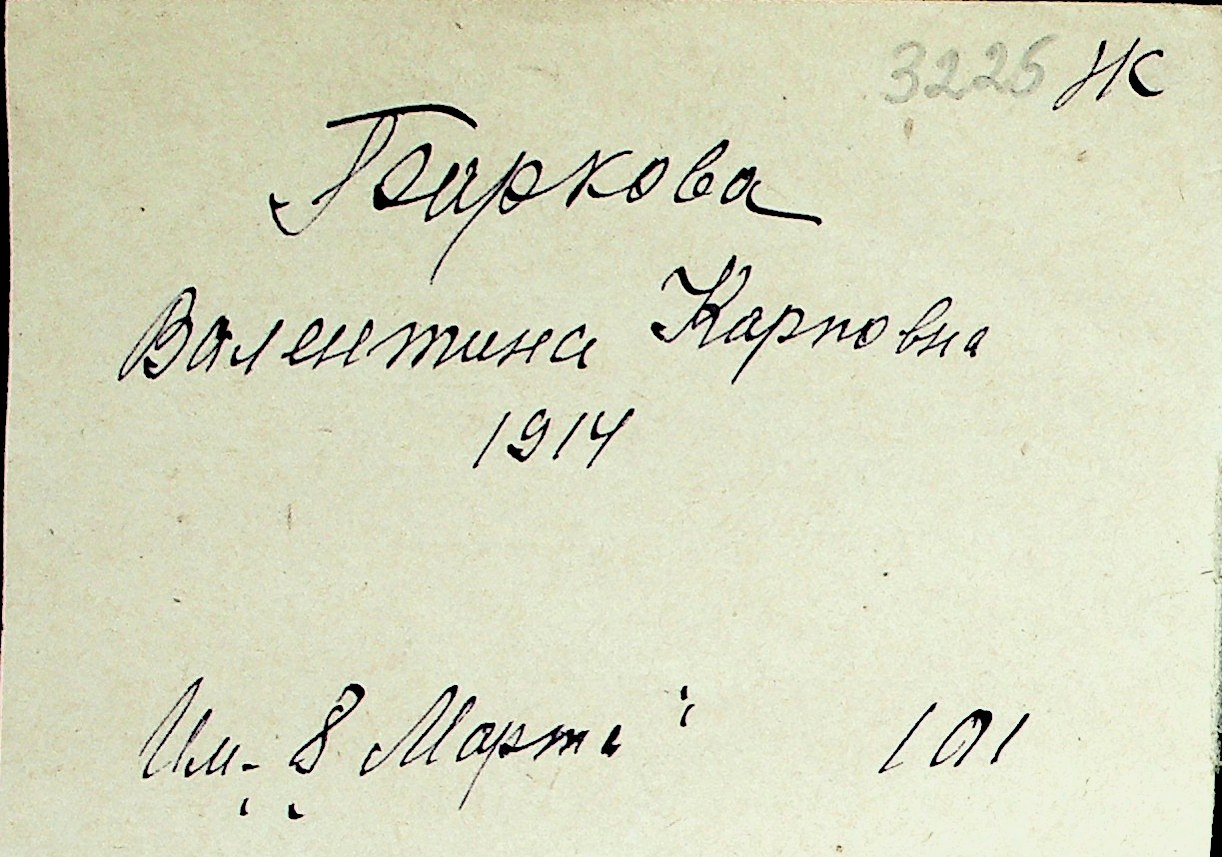 3225 Ж
Баркова
Валентина Карповна
1914
Им. „8 Марта“ 101